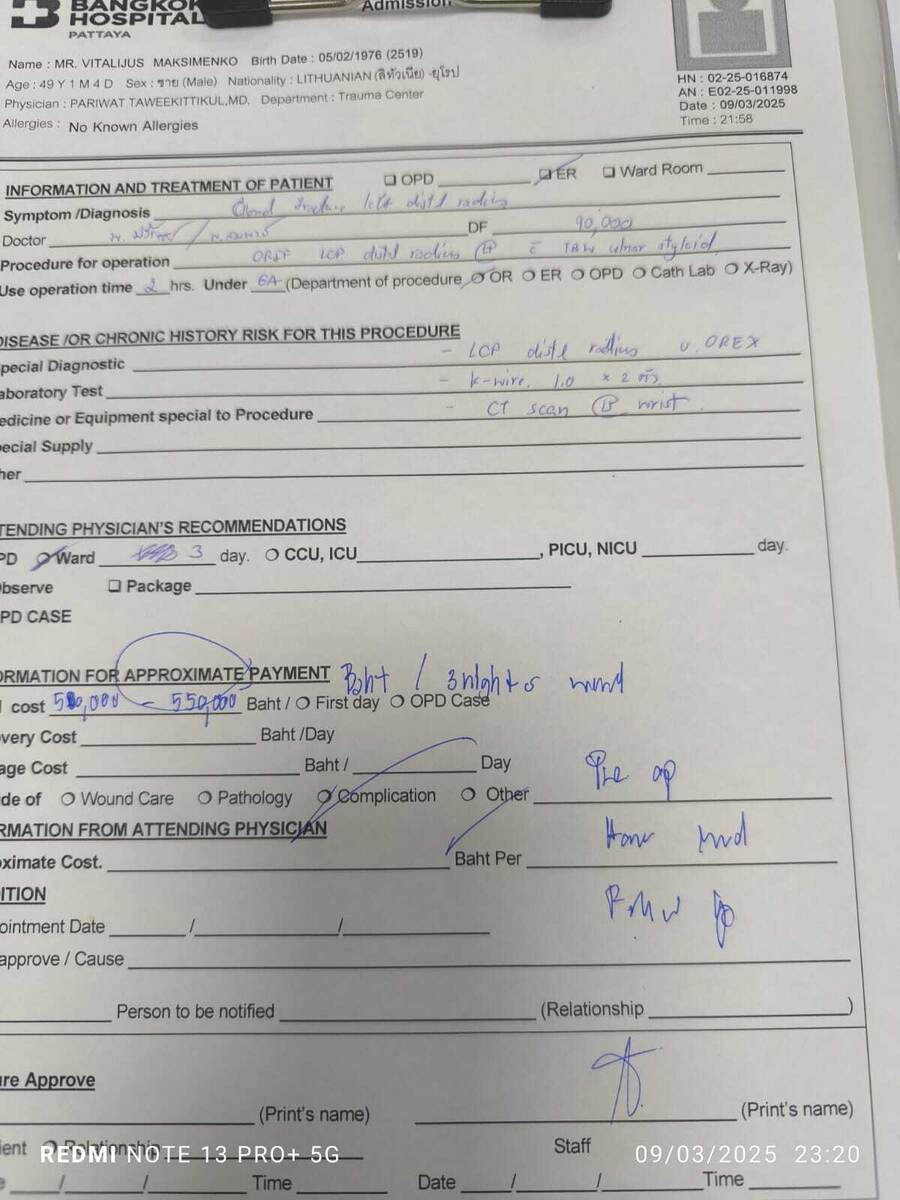 Admission
BANGKOK
HOSPITAL
PATTAYA
Name : MR. VITALIJUS MAKSIMENKO Birth Date : 05/02/1976 (2519)
Age : 49 Y 1 M 4 D Sex : ชาย (Male) Nationality : LITHUANIAN (ลิทัวเนีย) -ยุโรป
Physician : PARIWAT TAWEEKITTIKUL,MD. Department : Trauma Center
Allergies : No Known Allergies
HN : 02-25-016874
AN : E02-25-011998
Date : 09/03/2025
Time : 21:58
INFORMATION AND TREATMENT OF PATIENT OPD ER Ward Room
Symptom /Diagnosis Closed fracture left distal radius
Doctor DF 90,000
Procedure for operation ORIF LCP distal radius TBW ulnar styloid
Use operation time 2 hrs. Under GA (Department of procedure OR ER OPD Cath Lab X-Ray)
DISEASE /OR CHRONIC HISTORY RISK FOR THIS PROCEDURE
pecial Diagnostic - LCP distal radius v. OREX
aboratory Test - k-wire 1.0 x 2
edicine or Equipment special to Procedure - CT scan wrist
ecial Supply
her
TENDING PHYSICIAN'S RECOMMENDATIONS
PD Ward 3 day. CCU, ICU , PICU, NICU day.
bserve Package
PD CASE
ORMATION FOR APPROXIMATE PAYMENT Baht / 3 nights
cost 500,000 - 550,000 Baht / First day OPD Case
very Cost Baht /Day
age Cost Baht / Day
de of Wound Care Pathology Complication Other Pre op
RMATION FROM ATTENDING PHYSICIAN
oximate Cost. Baht Per Home med
ITION
ointment Date / / Follow up
approve / Cause
Person to be notified (Relationship )
ure Approve
(Print's name) (Print's name)
ient Relationship Staff
/ / Time Date / / Time
REDMI NOTE 13 PRO+ 5G 09/03/2025 23:20